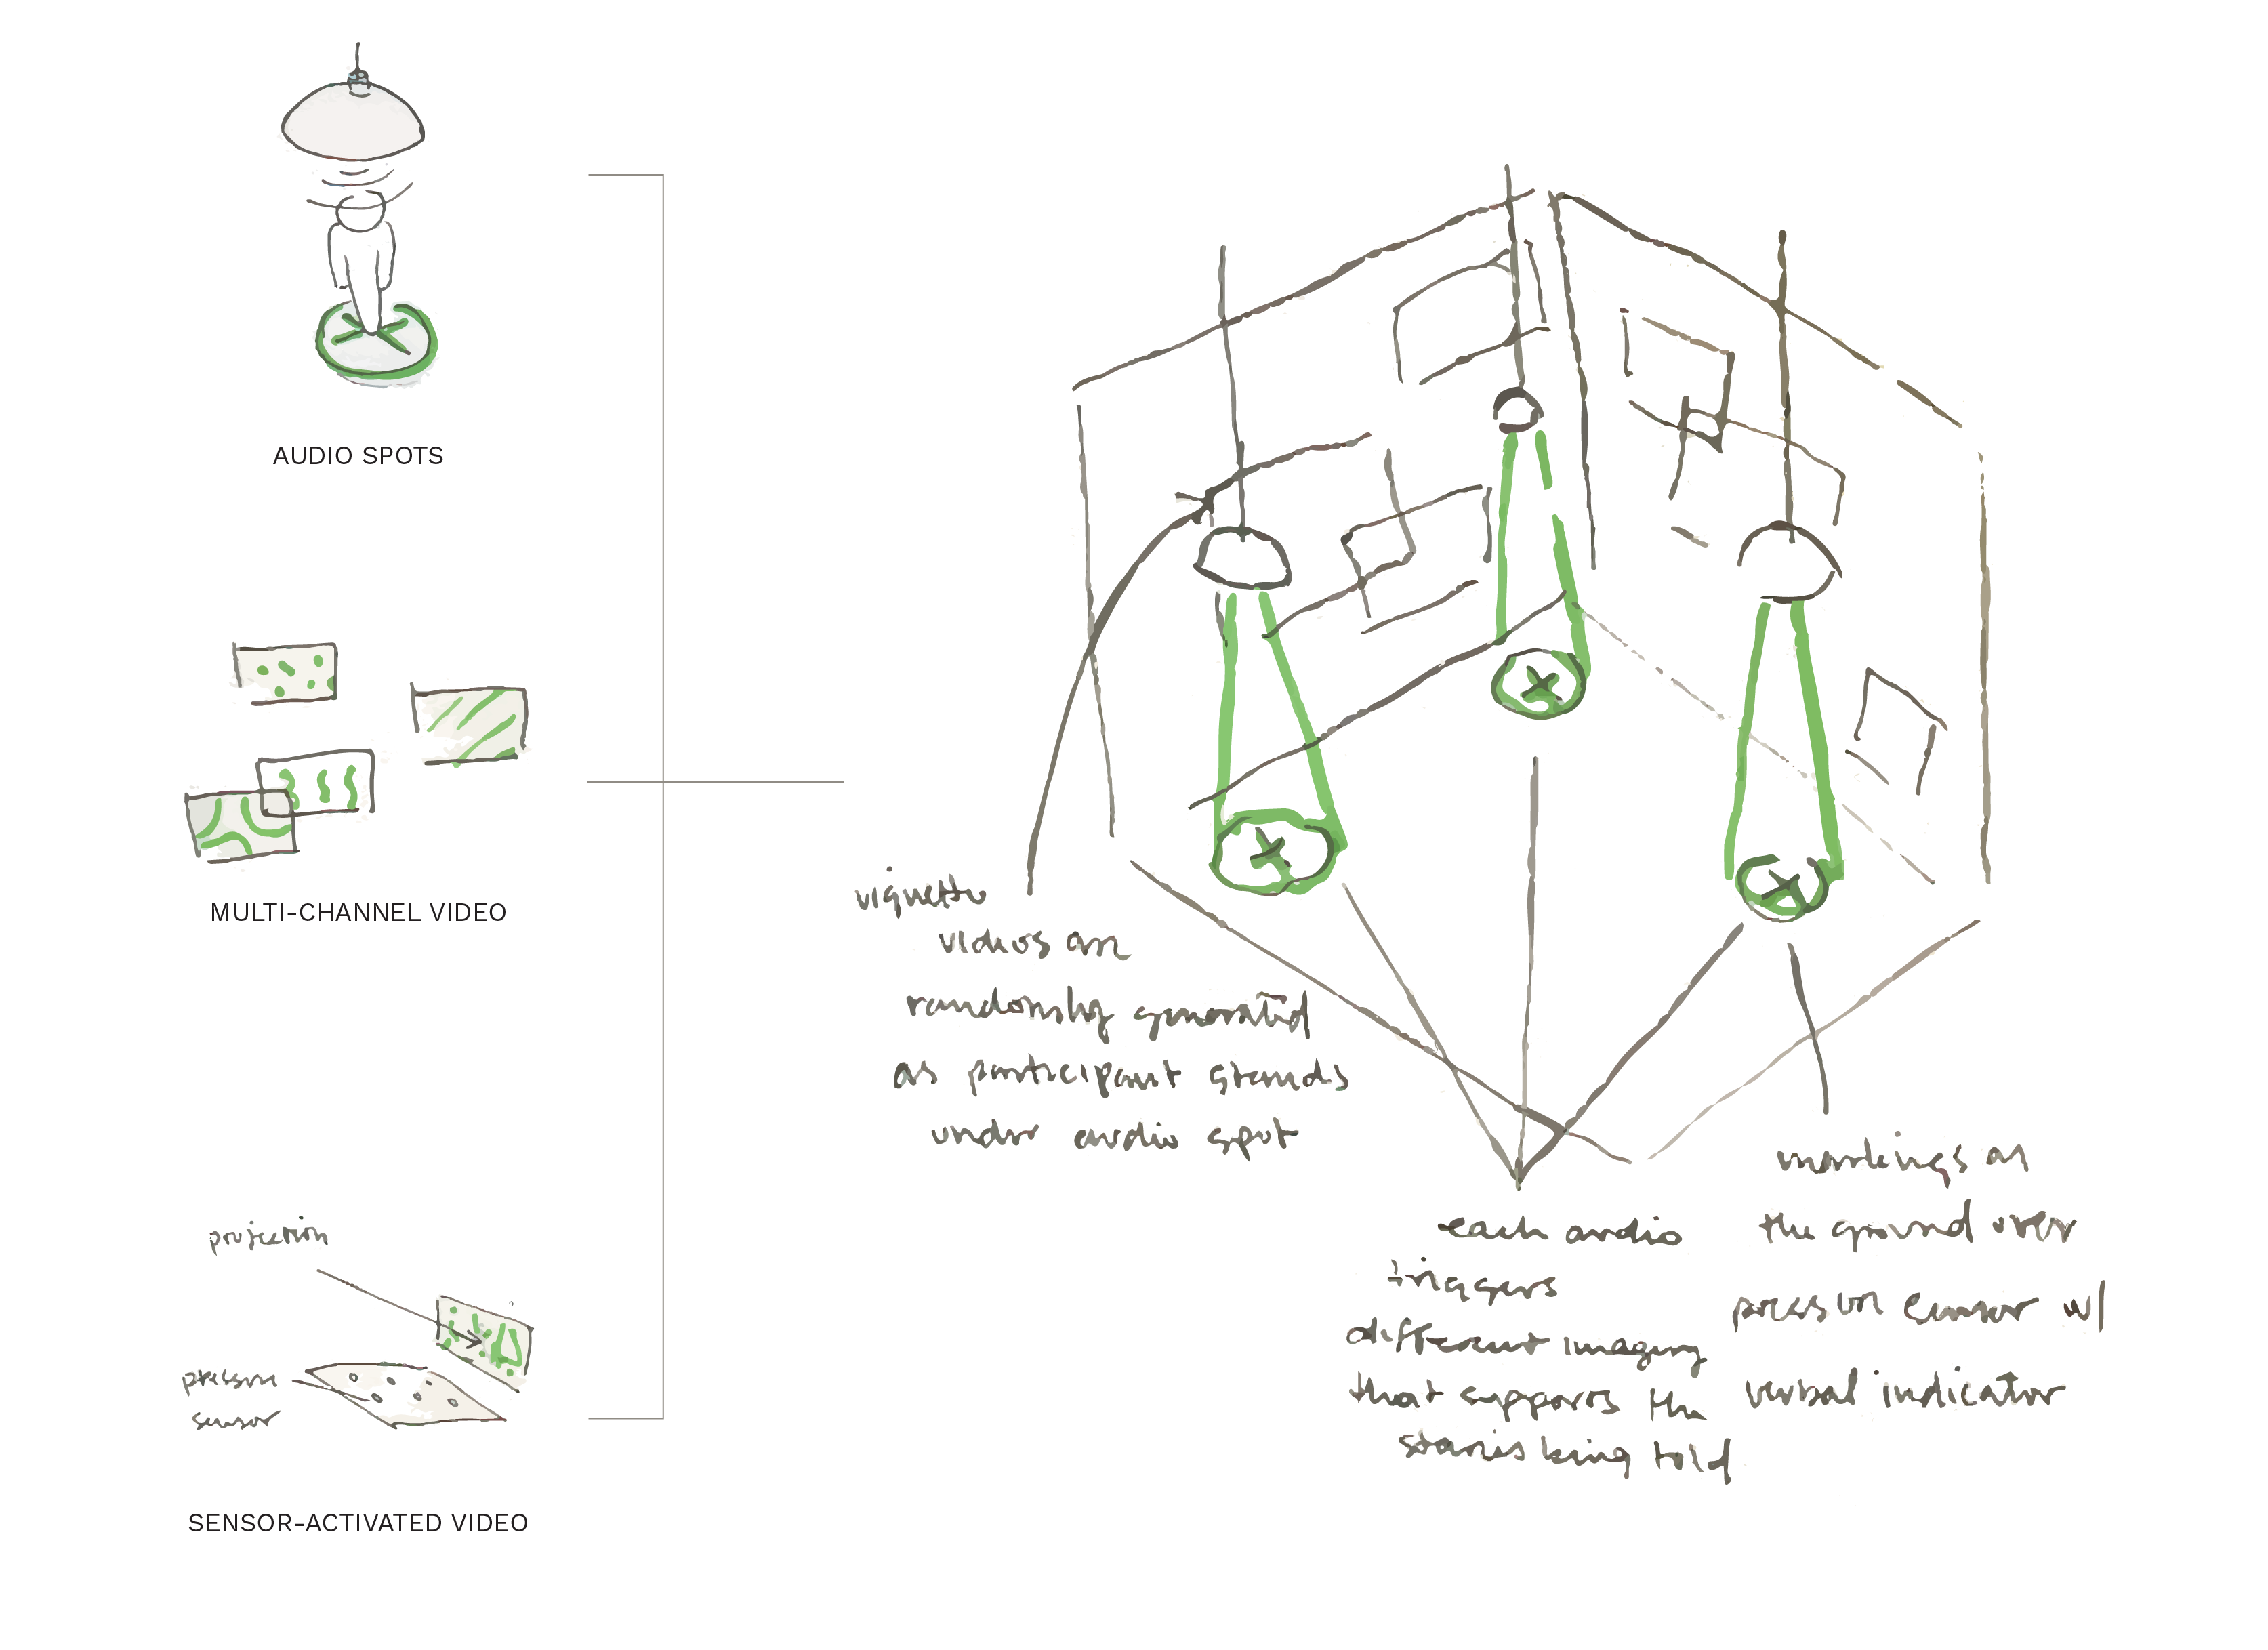 AUDIO SPOTS
MULTI-CHANNEL VIDEO
projection
pressure
sensor
SENSOR-ACTIVATED VIDEO
vignette
videos are
randomly generated
as participant stands
under audio spot
each audio
triggers
different imagery
that supports the
stories being told
markings on
the ground over
pressure sensor w/
verbal indicator